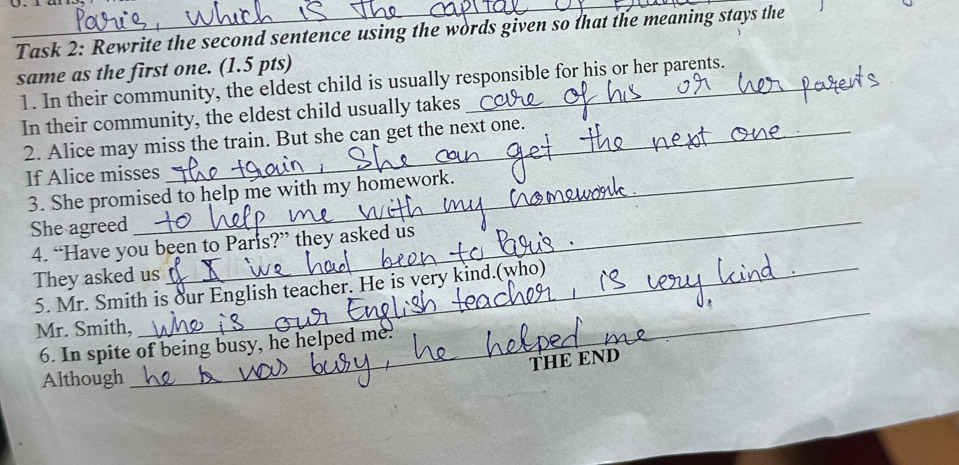 Paris, which is the capital of
Task 2: Rewrite the second sentence using the words given so that the meaning stays the
same as the first one. (1.5 pts)
1. In their community, the eldest child is usually responsible for his or her parents.
In their community, the eldest child usually takes care of his or her parents
2. Alice may miss the train. But she can get the next one.
If Alice misses the train, She can get the next one.
3. She promised to help me with my homework.
She agreed to help me with my homework.
4. “Have you been to Paris?” they asked us
They asked us if we had been to Paris.
5. Mr. Smith is our English teacher. He is very kind.(who)
Mr. Smith, who is our English teacher, is very kind.
6. In spite of being busy, he helped me.
Although he was busy, he helped me.
THE END